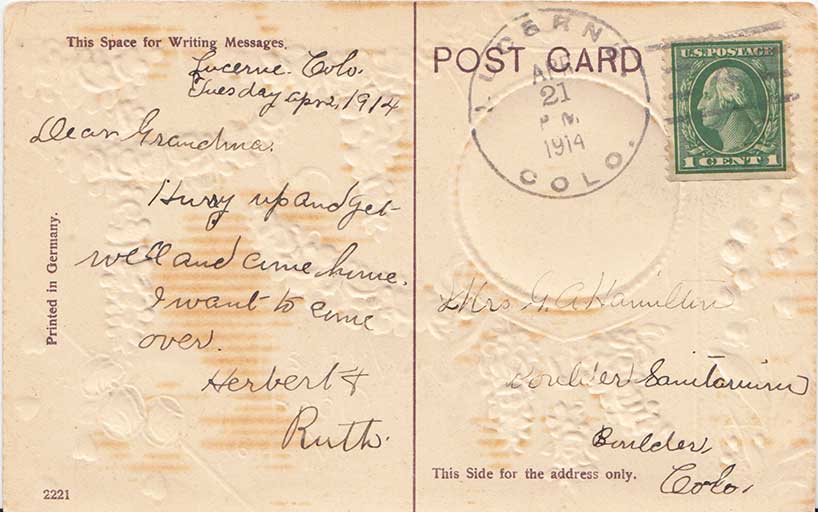 This Space for Writing Messages.
Lucerne. Colo.
Tuesday Apr 21, 1914
Dear Grandma.
Hurry up and get
well and come home.
I want to come
over.
Herbert &
Ruth.
Printed in Germany.
2221
POST CARD
LUCERNE
APR
21
P M.
1914
COLO.
U.S. POSTAGE
1 CENT 1
Mrs G. A Hamilton
Boulder Sanitarium
Boulder,
Colo.
This Side for the address only.